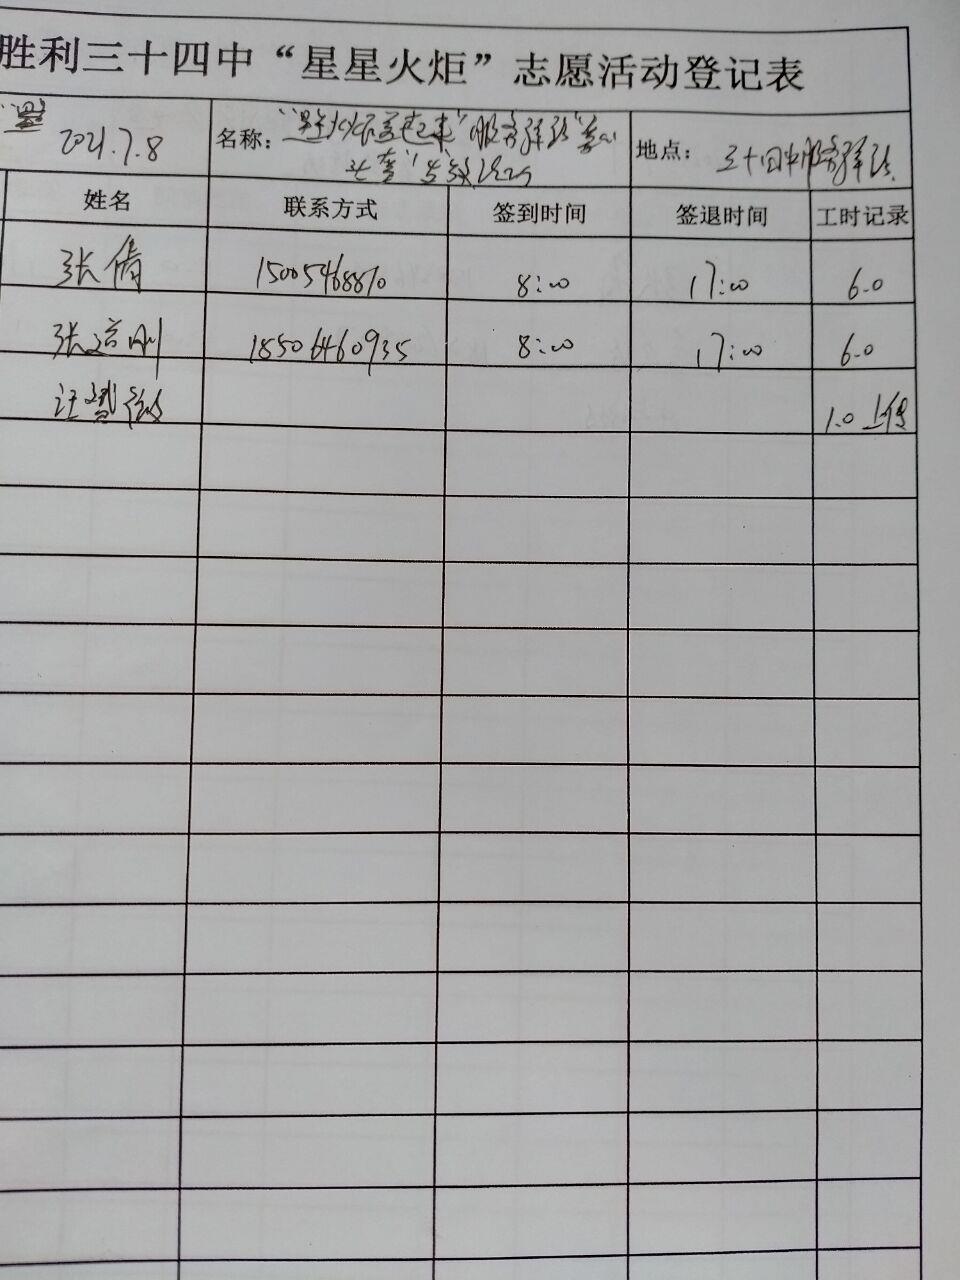 胜利三十四中“星星火炬”志愿活动登记表
2021.7.8 名称： 地点：三十四中服务驿站
姓名 联系方式 签到时间 签退时间 工时记录
张倩 15005468870 8:00 17:00 6.0
张道刚 18506460935 8:00 17:00 6.0
汪 1.0 上传